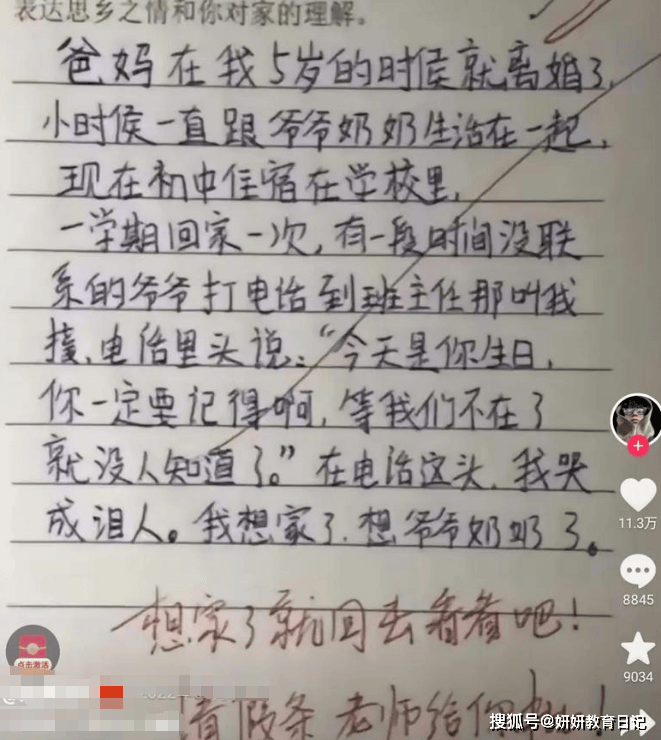 表达思乡之情和你对家的理解。
爸妈在我5岁的时候就离婚了,
小时侯一直跟爷爷奶奶生活在一起,
现在初中住宿在学校里,
一学期回家一次,有一段时间没联
系的爷爷打电话到班主任那叫我
接,电话里头说:“今天是你生日,
你一定要记得啊,等我们不在了
就没人知道了。”在电话这头,我哭
成泪人。我想家了,想爷爷奶奶了。
想家了就回去看看吧!
11.3万
8845
9034
点击激活
请假条 老师给你
搜狐号@妍妍教育日记